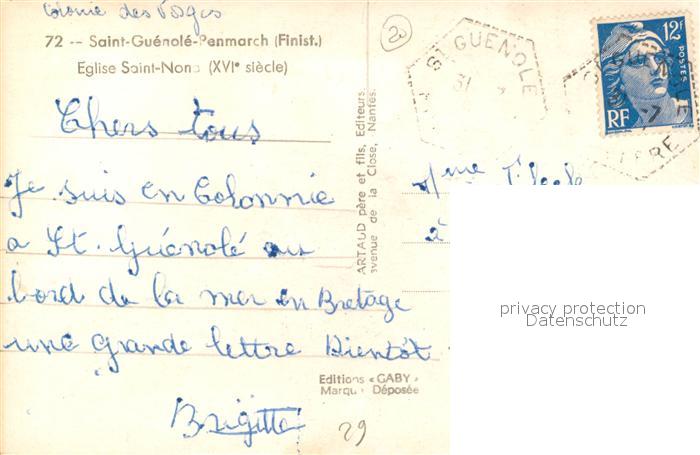 Colonie des Vosges
72 -- Saint-Guénolé-Penmarch (Finist.)
Eglise Saint-Nona (XVIe siècle)
Chers tous
Je suis en Colonnie
a St. Guénolé au
bord de la mer en Bretage
une grande lettre Bientôt
Brigitte
Editions « GABY »
Marque Déposée
29
ARTAUD père et fils, Editeurs
avenue de la Close, Nantes.
20
ST GUENOLE
31
12F
POSTES
RF
Mme
à
privacy protection
Datenschutz